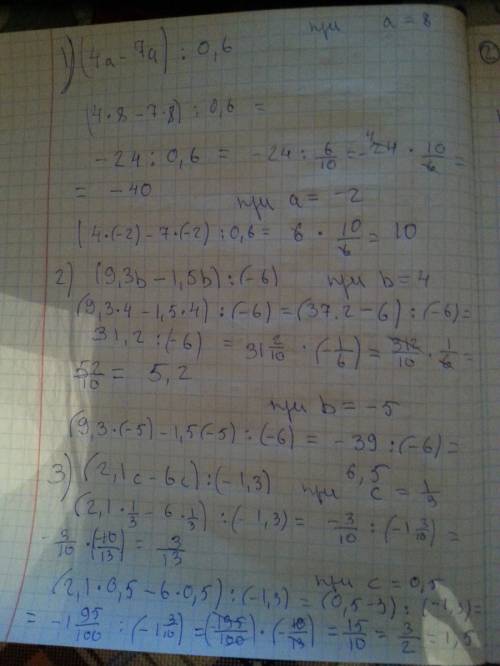 при a = 8
1) (4a - 7a) : 0,6
(4·8 - 7·8) : 0,6 =
-24 : 0,6 = -24 : 6/10 = -24 · 10/6 =
= -40
при a = -2
(4·(-2) - 7·(-2) : 0,6 = 6 · 10/6 = 10
2) (9,3b - 1,5b) : (-6) при b = 4
(9,3·4 - 1,5·4) : (-6) = (37,2 - 6) : (-6) =
31,2 : (-6) = 31 2/10 · (-1/6) = 312/10 · 1/6 =
52/10 = 5,2
при b = -5
(9,3·(-5) - 1,5(-5) : (-6) = -39 : (-6) =
6,5
3) (2,1c - 6c) : (-1,3) при c = 1/3
(2,1 · 1/3 - 6 · 1/3) : (-1,3) = -3/10 : (-1 3/10) =
-3/10 · (-10/13) = 3/13
при c = 0,5
(2,1·0,5 - 6·0,5) : (-1,3) = (0,5 - 3) : (-1,3) =
= -1 95/100 : (-1 3/10) = (195/100) · (-10/13) = 15/10 = 3/2 = 1,5
2